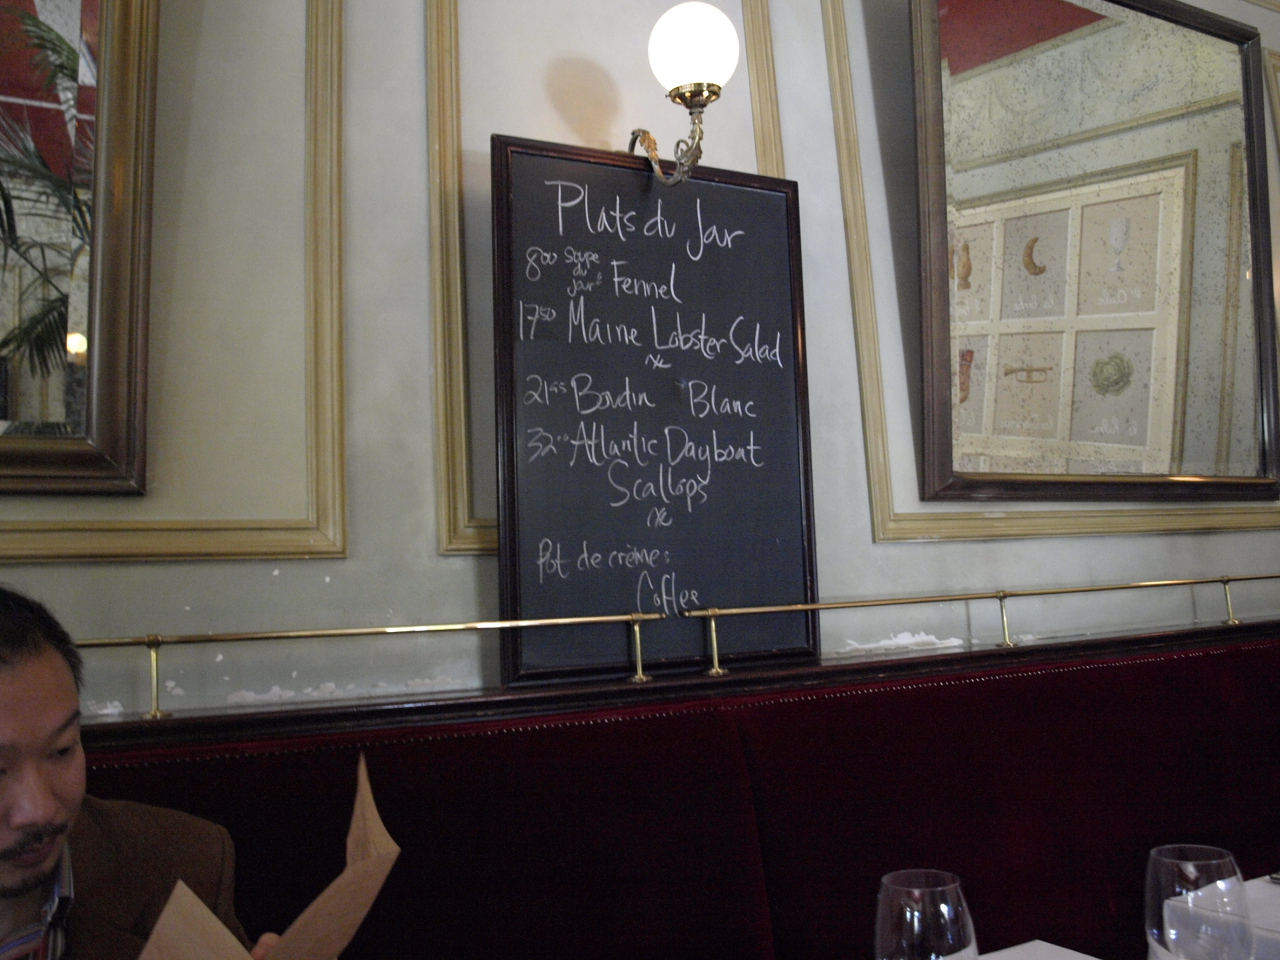 Plats du Jar
800 Soupe du Jar: Fennel
1750 Maine Lobster Salad
2195 Boudin Blanc
3200 Atlantic Dayboat
Scallops
Pot de crème:
Coffee